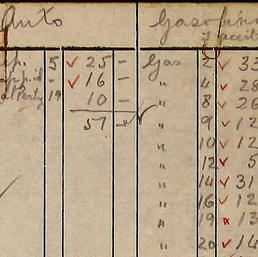 Auto Gaso
y aceite
5 ✓ 25 — Gas 2 ✓ 33
✓ 16 — " 4 ✓ 28
19 10 — " 8 ✓ 26
51 — ✓ " 9 ✓ 12
" 10 ✓ 12
" 12 ✓ 5
" 14 ✓ 31
" 16 ✓ 12
" 19 13
" 20 ✓ 14